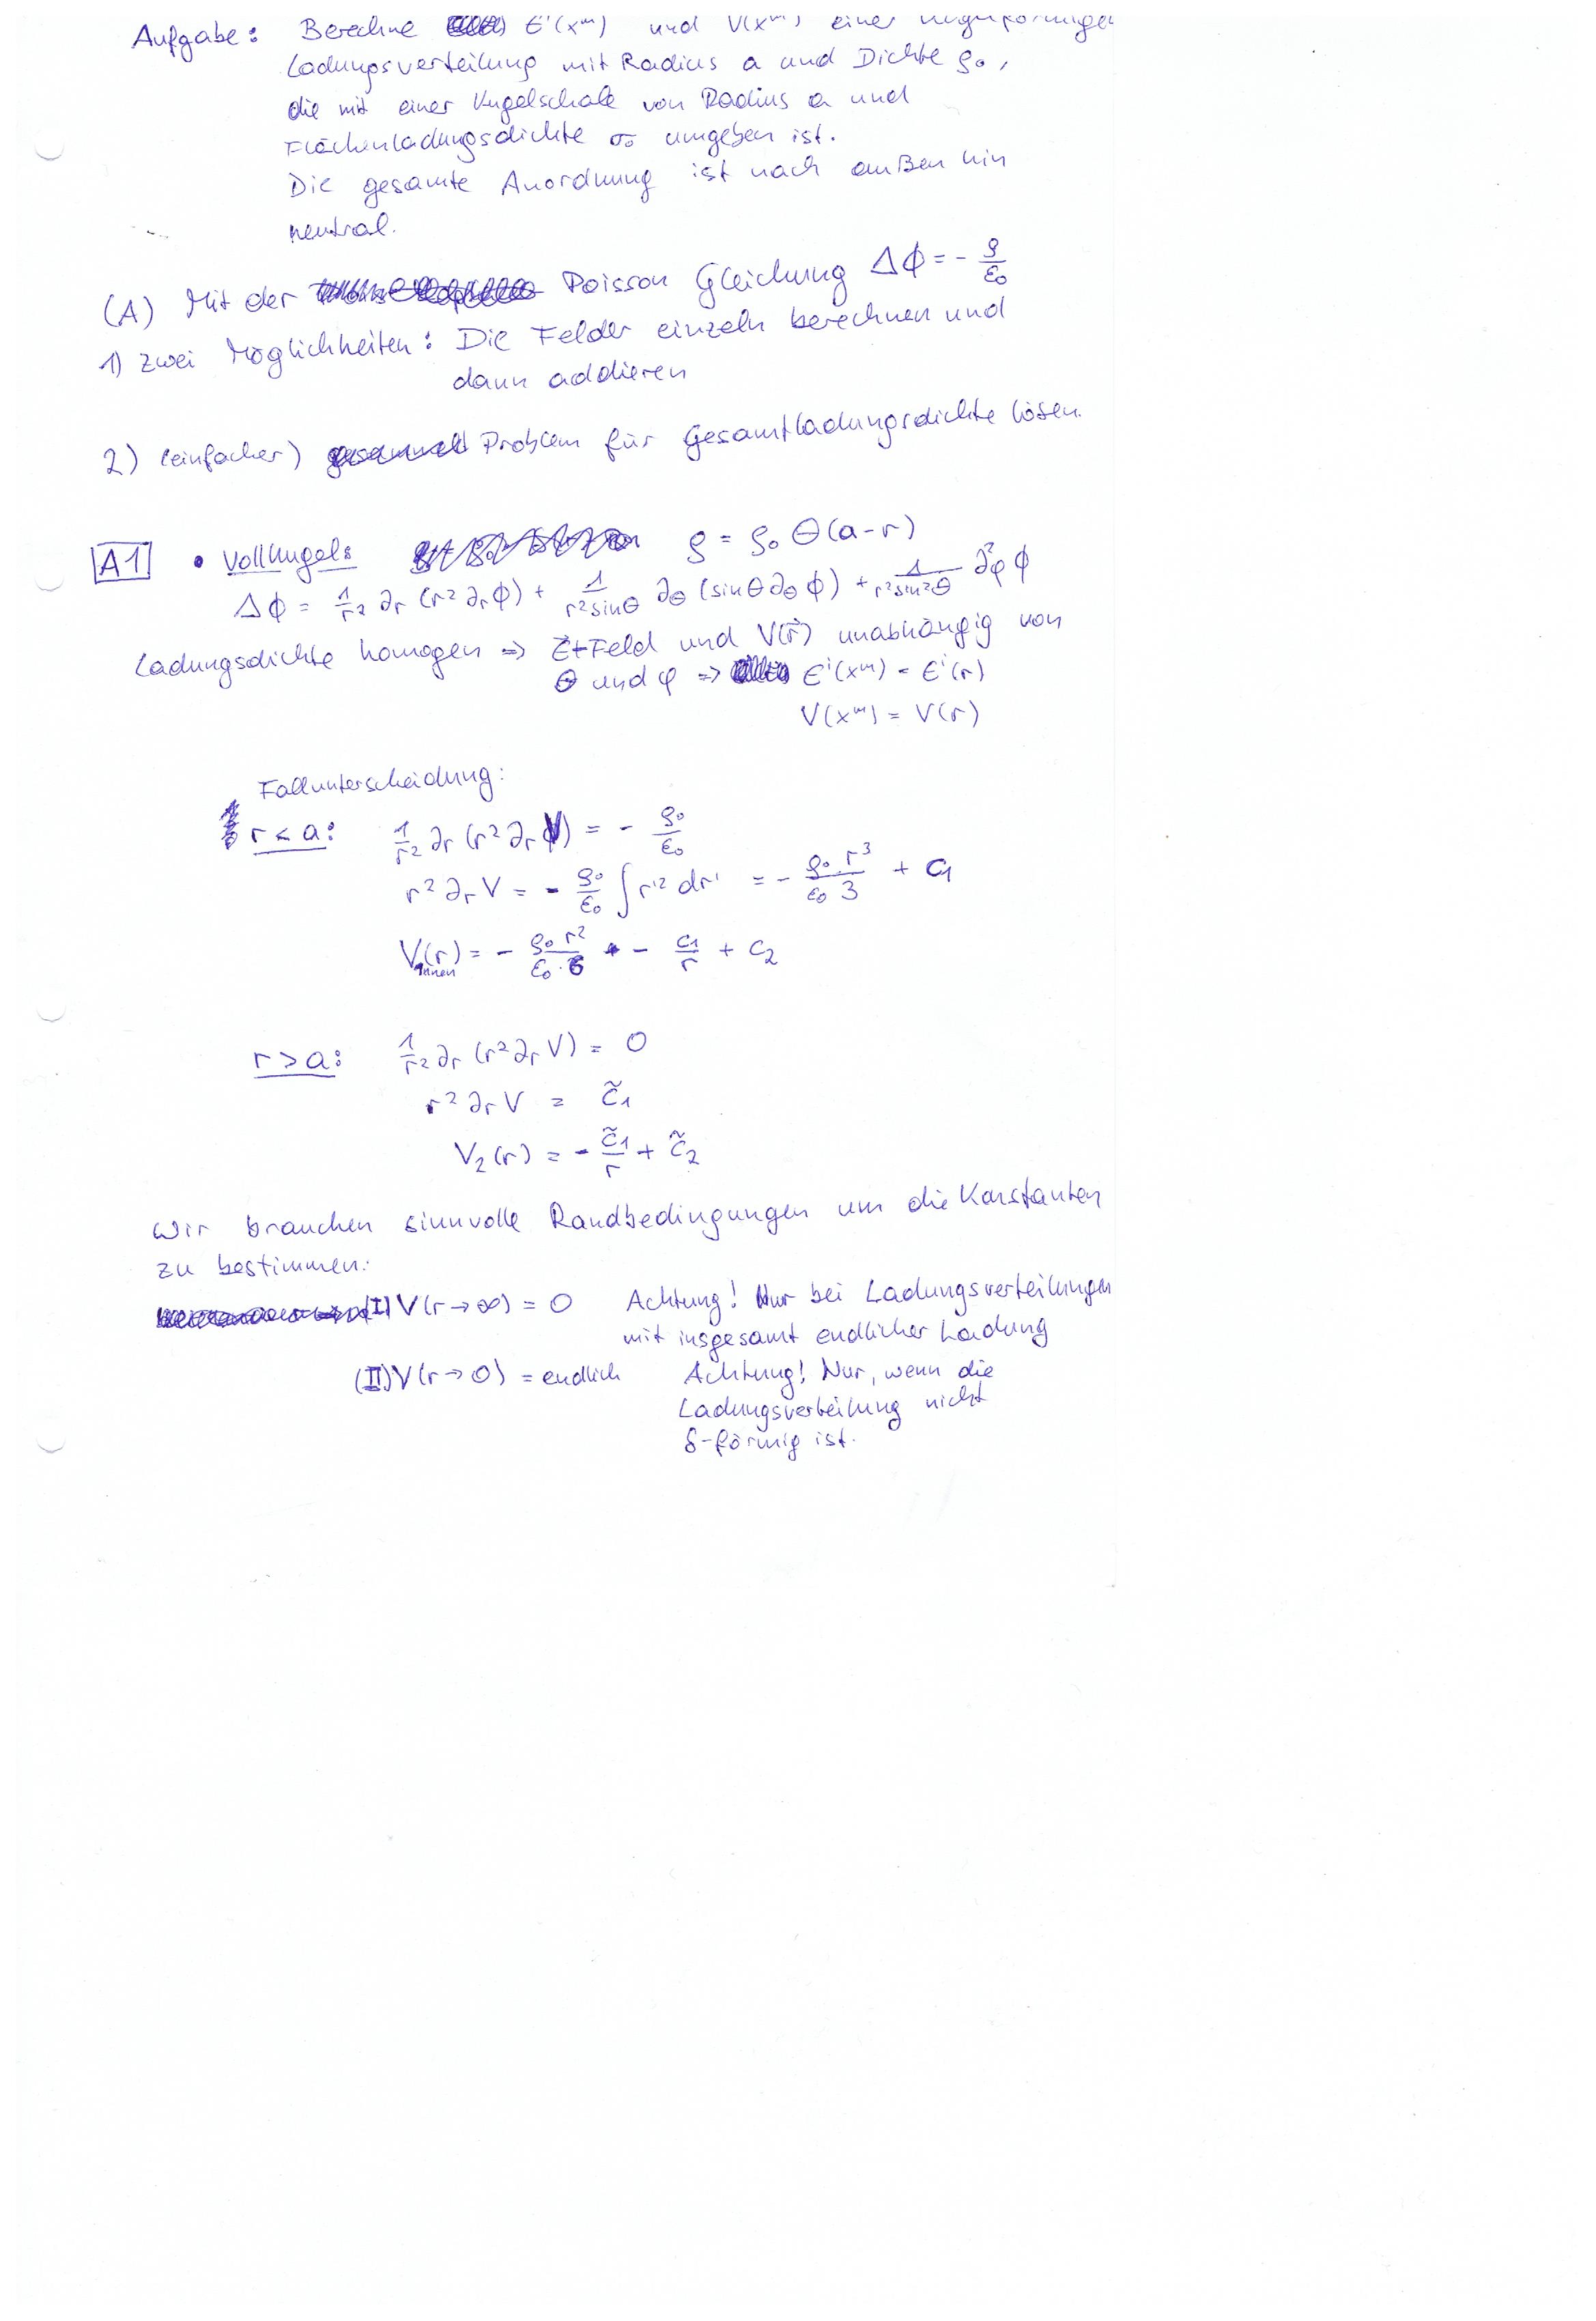 Aufgabe: Berechne E^i(x^m) und V(x^m) einer kugelförmigen
Ladungsverteilung mit Radius a und Dichte ρ₀,
die mit einer Kugelschale von Radius a und
Flächenladungsdichte σ₀ umgeben ist.
Die gesamte Anordnung ist nach außen hin
neutral.
(A) Mit der Poisson Gleichung Δϕ = - ρ/ε₀
1) zwei Möglichkeiten: Die Felder einzeln berechnen und
dann addieren
2) (einfacher) Problem für Gesamtladungsdichte lösen.
A1 • Vollkugel: ρ = ρ₀ Θ(a-r)
Δϕ = 1/r² ∂r (r² ∂r ϕ) + 1/(r² sinθ) ∂θ (sinθ ∂θ ϕ) + 1/(r² sin²θ) ∂²φ ϕ
Ladungsdichte homogen ⇒ E-Feld und V(r⃗) unabhängig von
θ und φ ⇒ E^i(x^m) = E^i(r)
V(x^m) = V(r)
Fallunterscheidung:
r < a: 1/r² ∂r (r² ∂r V) = - ρ₀/ε₀
r² ∂r V = - ρ₀/ε₀ ∫ r'² dr' = - ρ₀ r³/(ε₀ 3) + c₁
V_innen(r) = - ρ₀ r²/(ε₀·6) - c₁/r + c₂
r > a: 1/r² ∂r (r² ∂r V) = 0
r² ∂r V = c̃₁
V₂(r) = - c̃₁/r + c̃₂
Wir brauchen sinnvolle Randbedingungen um die Konstanten
zu bestimmen:
(I) V(r→∞) = 0 Achtung! Nur bei Ladungsverteilungen
mit insgesamt endlicher Ladung
(II) V(r→0) = endlich Achtung! Nur, wenn die
Ladungsverteilung nicht
δ-förmig ist.